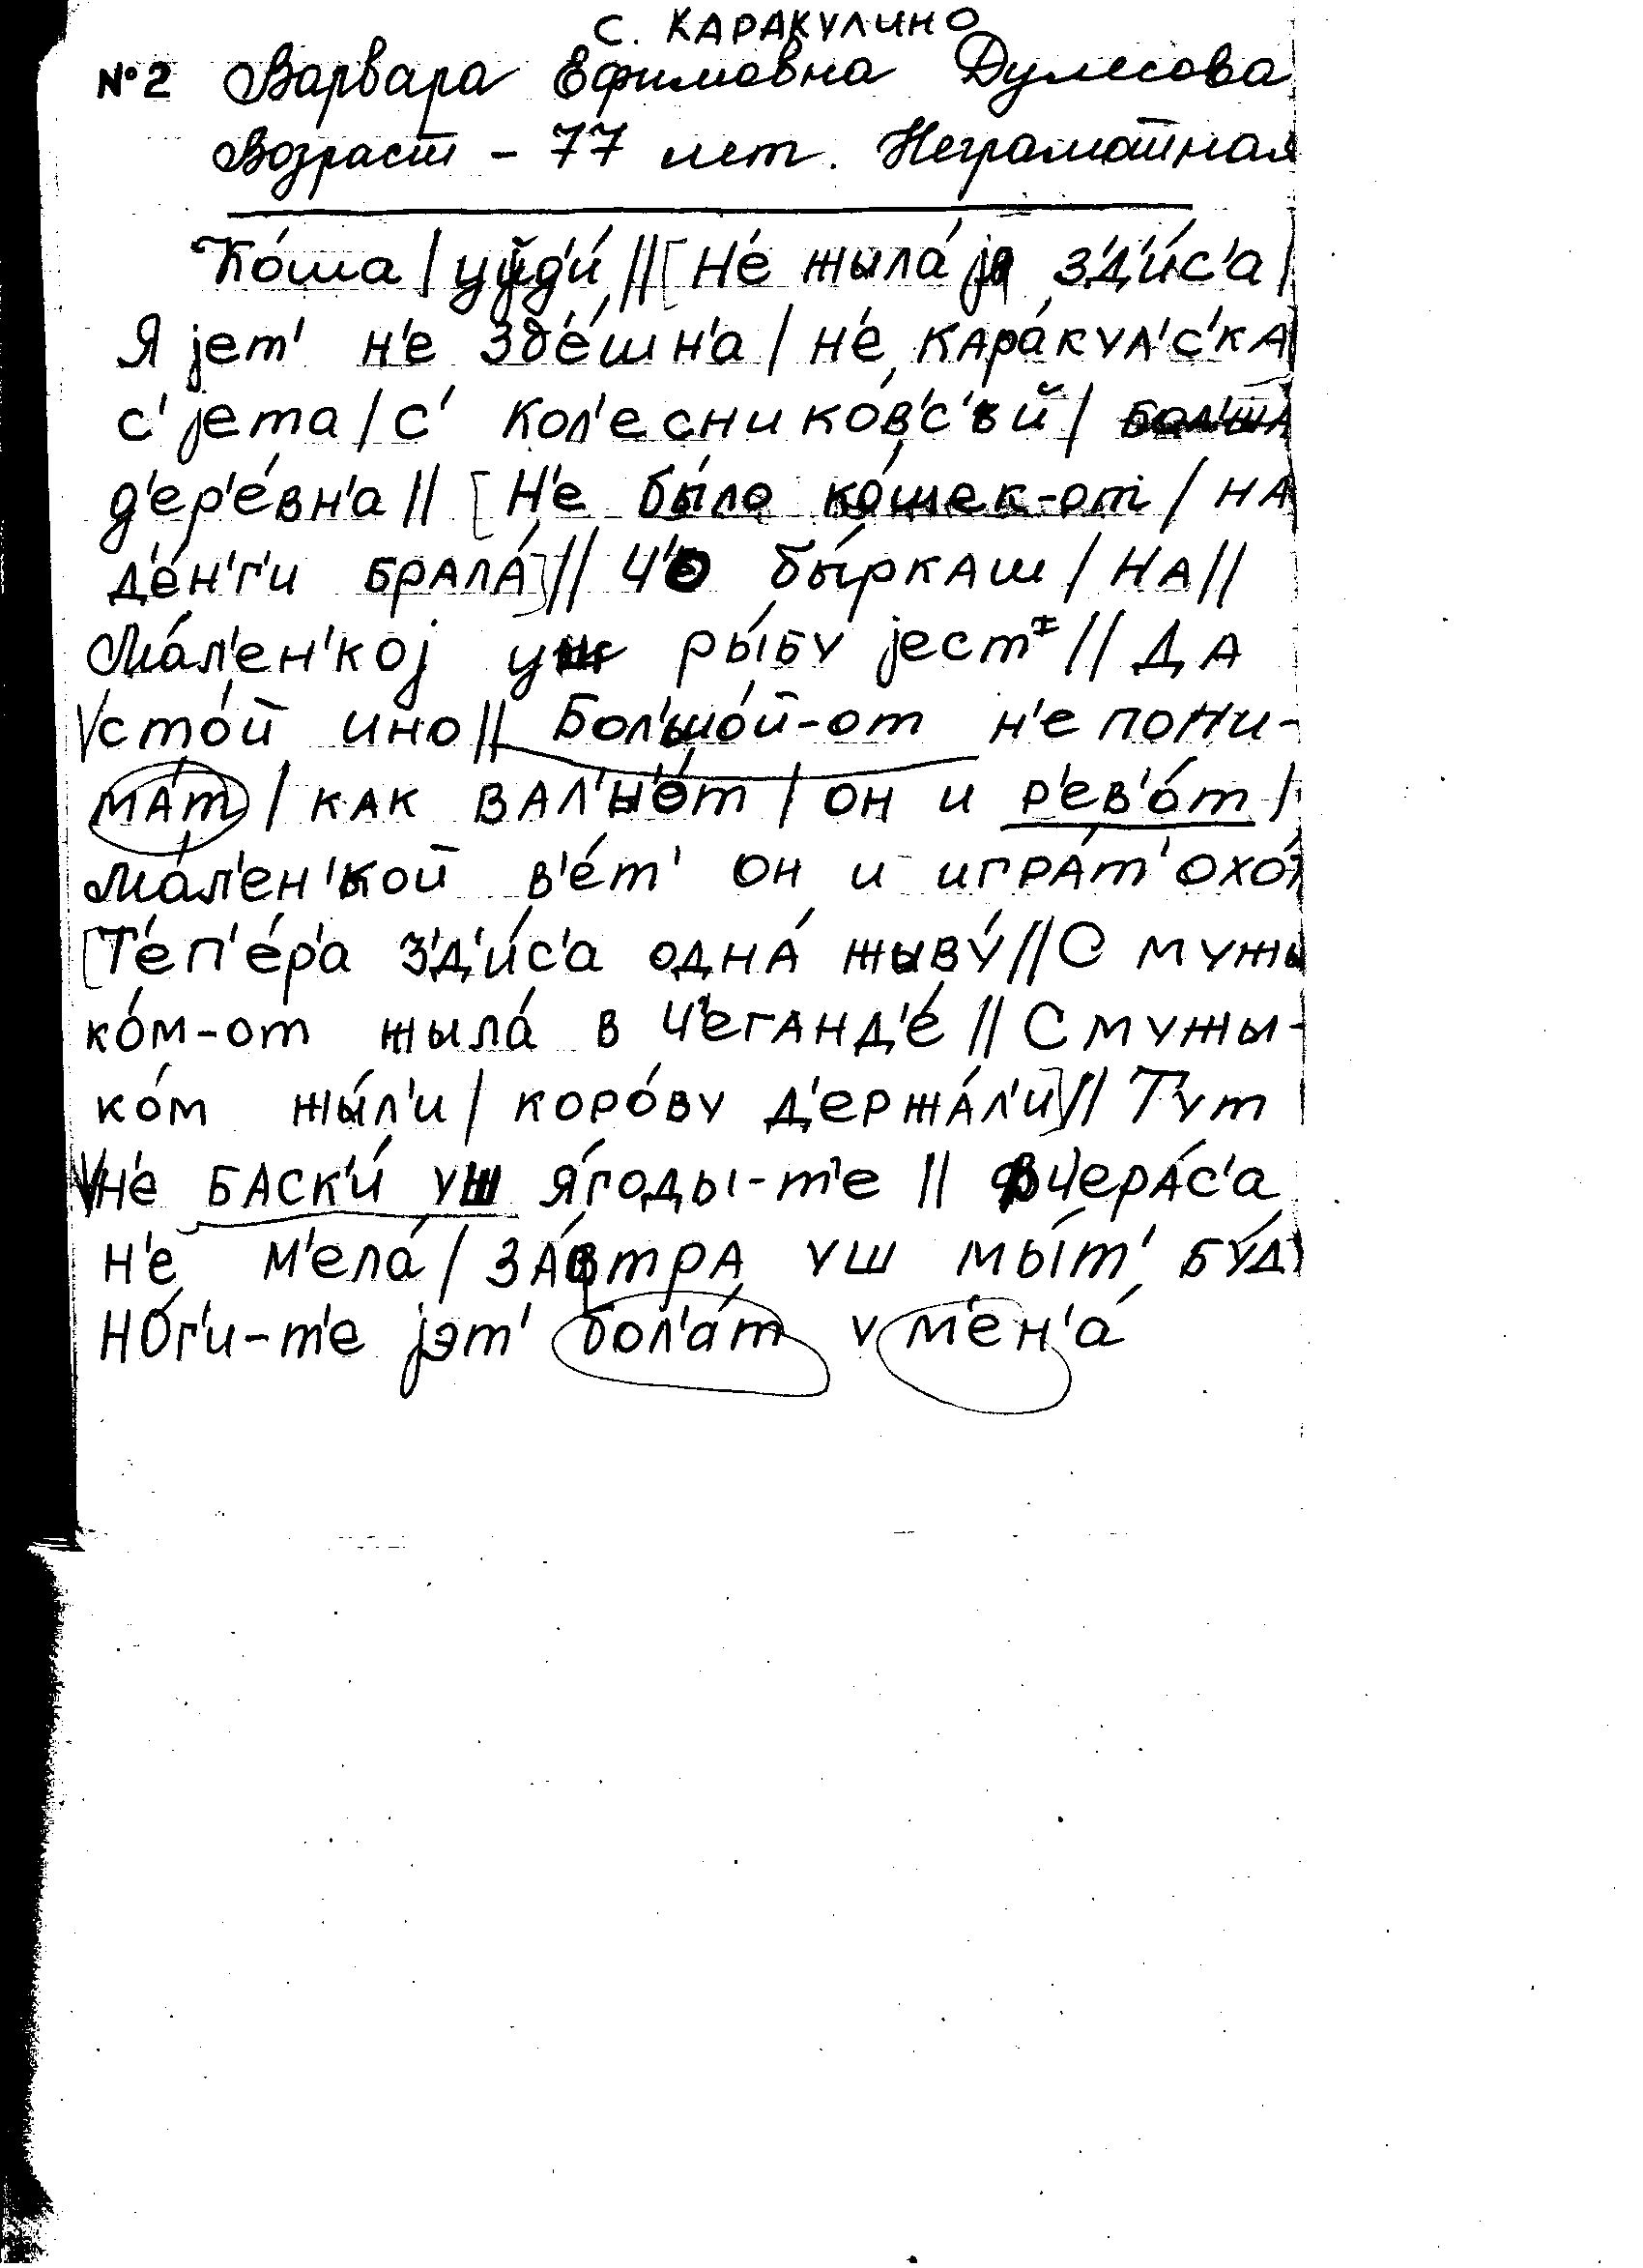 с. КАРАКУЛИНО
№2 Варвара Ефимовна Дулесова
Возраст – 77 лет. Неграмотная
Ко́ша / уйд'и́ // [Н'е жыла́ jа з'д'и́с'а /
Я jет' н'е зд'е́шн'а / н'е кара́кул'с'ка
с' jета / с' Кол'еснико́в'с'ъй /
д'ер'е́вн'а // [Н'е бы́ло ко́шек-от / на
д'е́н'г'и брала́] // Ч'о бы́ркаш / на //
Ма́л'ен'коj уж ры́бу jест // Да
сто́й ино // Бол'шо́й-от н'е пони-
ма́т / как вал'н'о́т / он и р'ев'о́т /
Ма́л'ен'кой в'е́т' он и игра́т'
[Т'еп'е́р'а з'д'и́с'а одна́ жыву́ // С мужы
ко́м-от жыла́ в Ч'еганд'е́ // С мужы-
ко́м жы́л'и / коро́ву д'ержа́л'и] // Тут
н'е баск'и́ уш я́годы-т'е // вчера́с'а
н'е м'ела́ / за́втра уш мы́т'
но́г'и-т'е jэт' бол'а́т у м'ен'а́